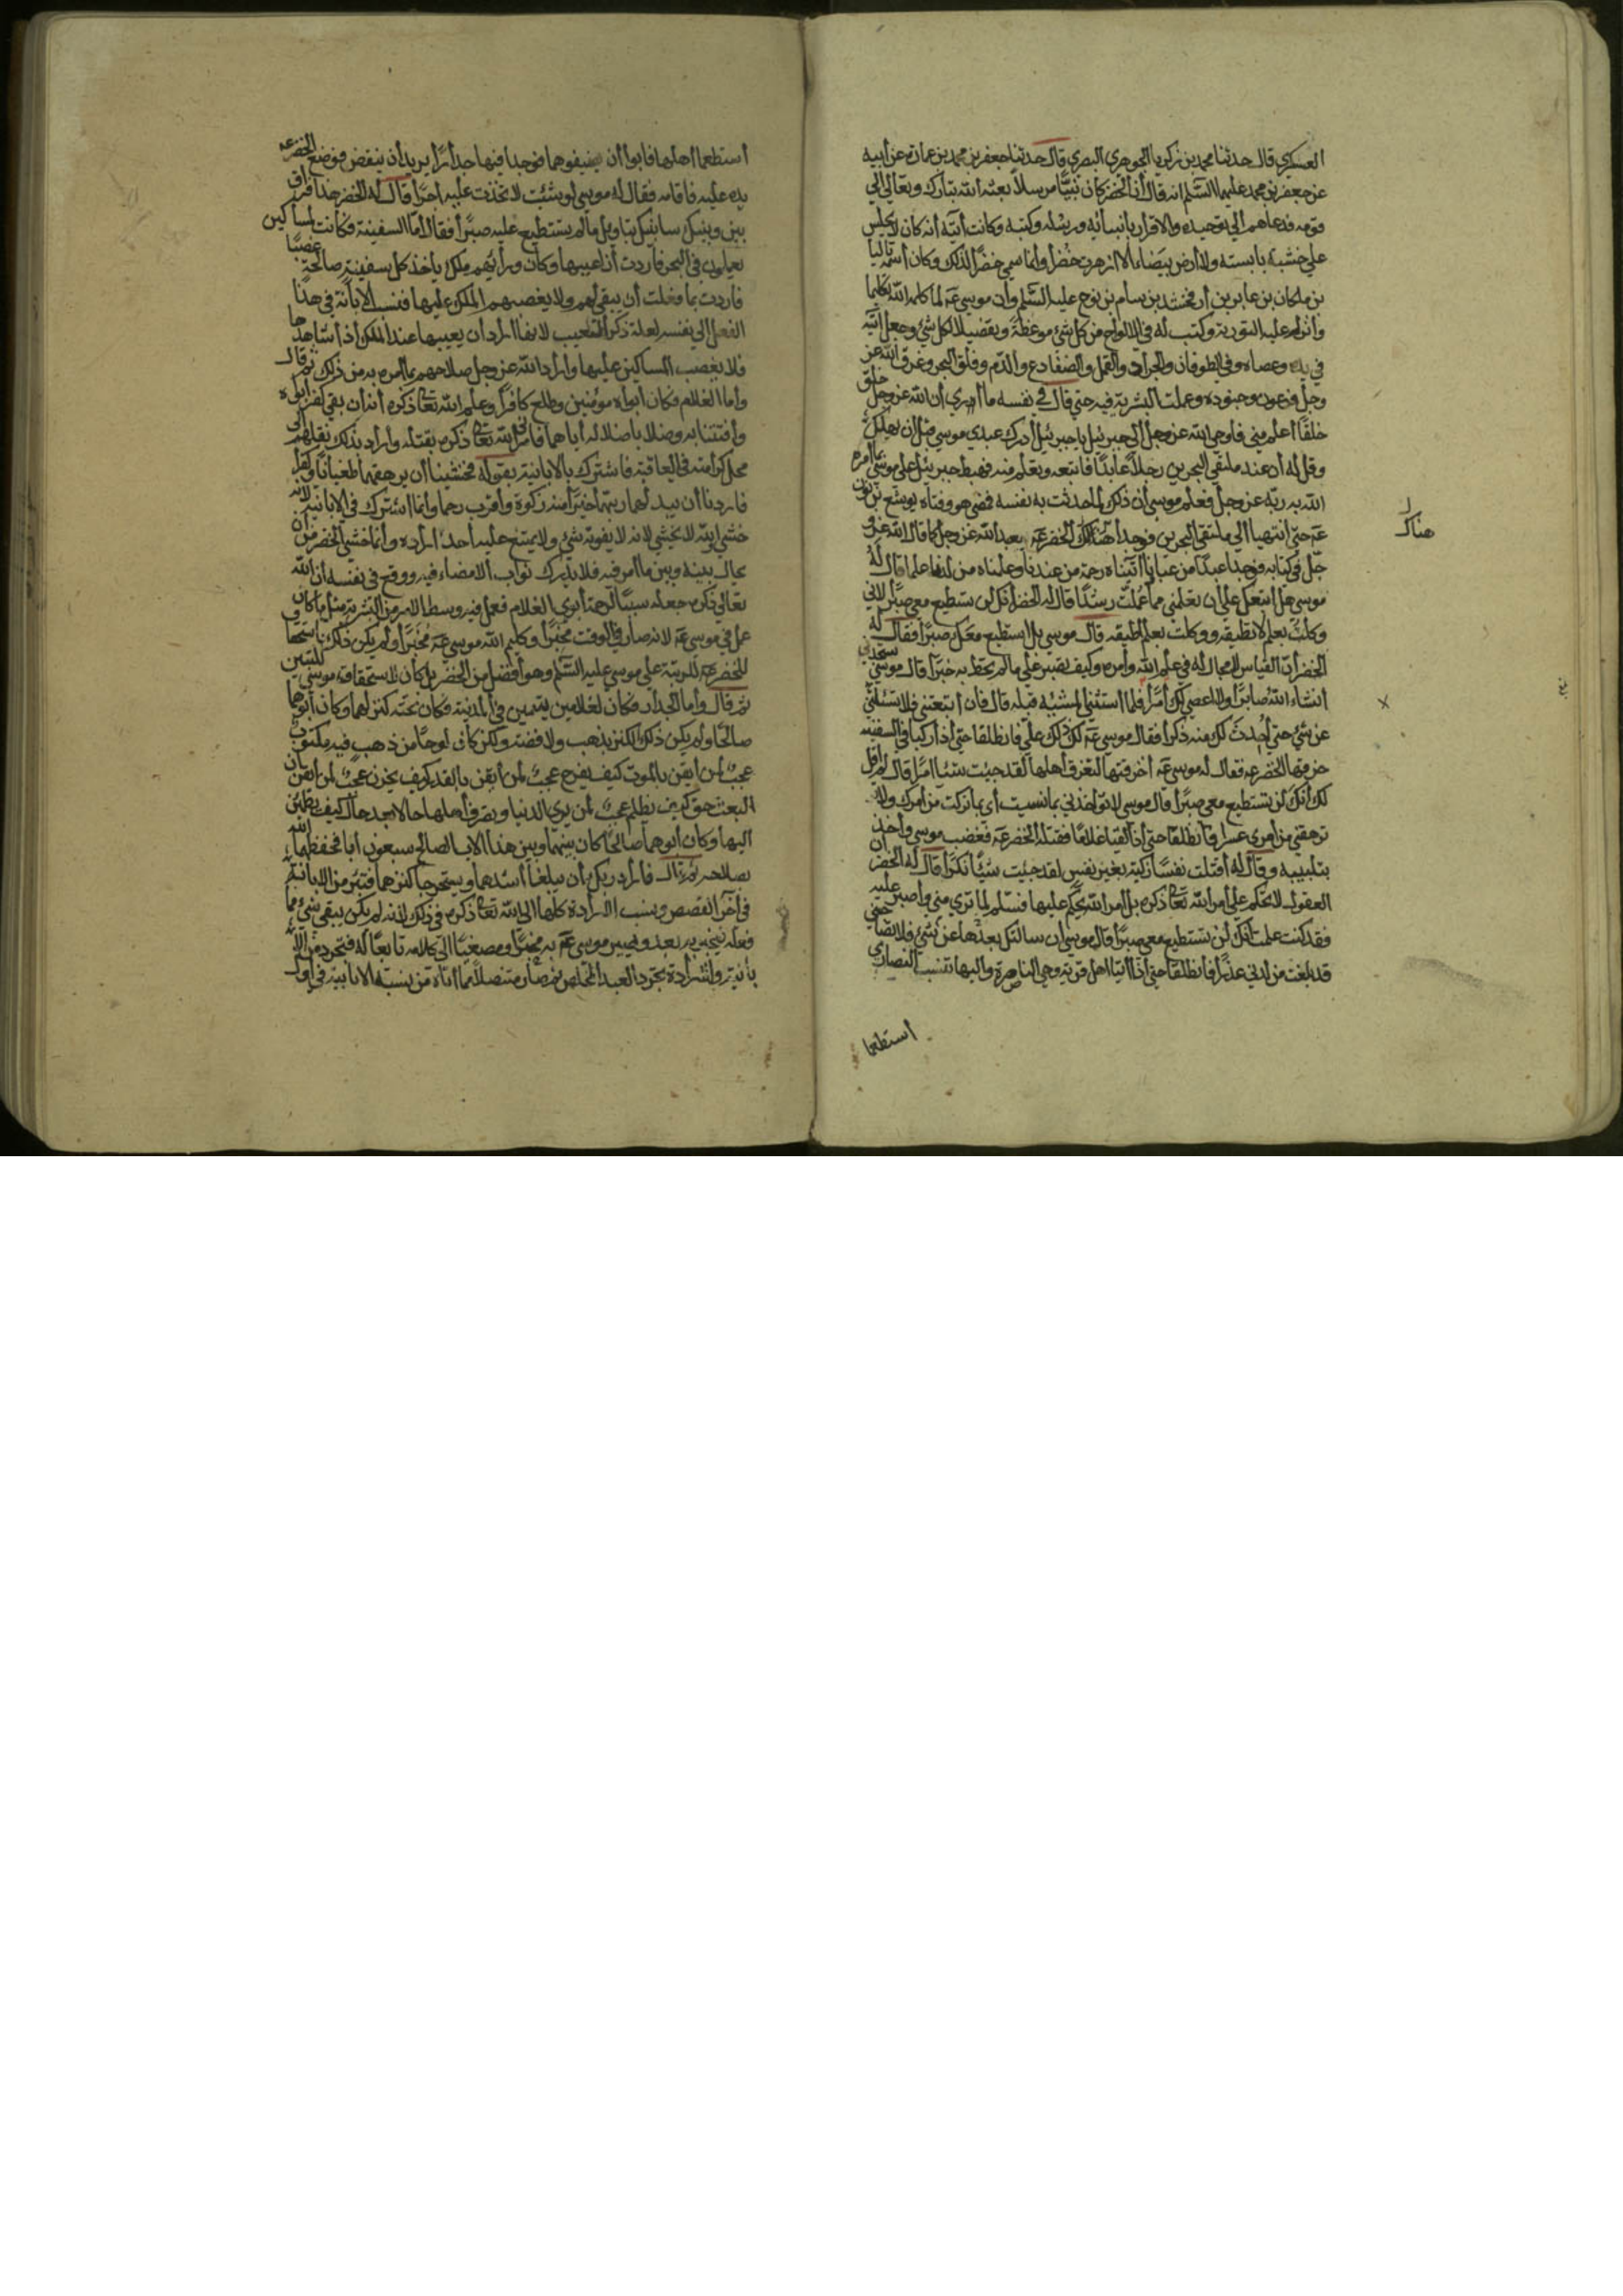 العسكري قال حدثنا محمد بن زكريا الجوهري البصري قال حدثنا جعفر بن محمد بن عمارة عن أبيه
عن جعفر بن محمد عليهما السلم انه قال أن الخضر كان نبيا مرسلا بعثه الله تبارك وتعالي الي
قومه فدعاهم الي توحيده والاقرار بانبيائه ورسله وكتبه وكانت أيته أنه كان لا يجلس
علي خشبة يابسته ولا أرض بيضاء الا ازهرت خضرا وانما سمي خضرا لذلك وكان أسمه تاليا
بن ملكان بن عابر بن أرفخشد بن سام بن نوح عليه السلم وأن موسي عه لما كلمه الله تكليما
وأنزل عليه التورية وكتب له في الالواح من كل شئ موعظة وتفضيلا لكل شئ وجعل أيته
في يده وعصاه وفي الطوفان والجراد والقمل والضفادع والدم وفلق البحر وغرق الله عز
وجل فرعون وجنوده وعملت البشرية فيه حتي قال في نفسه ما أري أن الله عز وجل خلق
خلقا أعلم مني فاوحي الله عز وجل الي جبرئيل يا جبرئيل أدرك عبدي موسي قبل أن يهلك
وقل له أن عند ملتقي البحرين رجلا عابدا فاتبعه وتعلم منه فهبط جبرئيل علي موسي بما امره
الله به ربه عز وجل فعلم موسي أن ذلك لما حدثت به نفسه فمضي هو وفتاه يوشع بن نون
عه حتي انتهيا الي ملتقي البحرين فوجدا هناك الخضر عه يعبد الله عز وجل كما قال الله عز و
هناك
جل في كتابه فوجدا عبدا من عبادنا أتيناه رحمة من عندنا وعلمناه من لدنا علما قال له
موسي هل اتبعك علي أن تعلمني مما علمت رشدا قال له الخضر انك لن تستطيع معي صبرا لاني
وكلت بعلم لا تطيقه ووكلت بعلم لا اطيقه قال موسي بل استطيع معك صبرا فقال له
الخضر أن القياس لا مجال له في علم الله وأمره وكيف تصبر علي ما لم تحط به خبرا قال موسي ستجدني
انشاء الله صابرا ولا اعصي لك أمرا فلما استثني المشية قبله قال فان أتبعتني فلا تسئلني
عن شئ حتي أحدث لك منه ذكرا فقال موسي عه لك ذلك علي فانطلقا حتي أذا ركبا في السفينة
خرقها الخضر عه فقال له موسي عه أخرقتها لتغرق أهلها لقد جيت شيئا امرا قال الم اقل
لك أنك لن تستطيع معي صبرا قال موسي لا تواخذني بما نسيت أي بما تركت من أمرك ولا
ترهقني من امري عسرا فانطلقا حتي أذا لقيا غلاما فقتله الخضر عه فغضب موسي وأخذ
بتلبيبه وقال له أقتلت نفسا زكية بغير نفس لقد جئيت شيئا نكرا قال له الخضر أن
العقول لا تحكم علي أمر الله تعالي ذكره بل أمر الله يحكم عليها فسلم لما تري مني وأصبر عليه
فقد كنت علمت انك لن تستطيع معي صبرا قال موسي ان سالتك بعدها عن شئ فلا تصاحبني
قد بلغت من لدني عذرا فانطلقا حتي اذا أتيا اهل قرية وهي الناصرة واليها تنسب النصاري
أستطعما
أستطعما اهلها فابوا أن يضيفوهما فوجدا فيها جدارا يريد أن ينقض فوضع الخضر عه
يده عليه فاقامه فقال له موسي لو شئت لاتخذت عليه اجرا قال له الخضر هذا فراق
بيني وبينك سانبئك بتاويل ما لم تستطيع عليه صبرا فقال أما السفينة فكانت لمساكين
يعملون في البحر فاردت أن اعيبها وكان ورأئهم ملك يأخذ كل سفينة صالحة غصبا
فاردت بما فعلت أن تبقي لهم ولا يغصبهم الملك عليها فنسب الابانة في هذا
الفعل الي نفسه لعلة ذكر التعييب لانه أراد أن يعيبها عند الملك أذا شاهدها
فلا يغصب المساكين عليها وأراد الله عز وجل صلاحهم بما أمره به من ذلك ثم قال
وأما الغلام فكان أبواه مؤمنين وطلع كافرا وعلم الله تعالي ذكره أنه أن بقي كفر أبواه
وأفتتنا به وضلا باضلاله أياهما فامرني الله تعالي ذكره بقتله وأراد بذلك نقلهم الي
محل كرامته في العاقبة فاشترك بالابانية بقوله فخشينا أن يرهقهما طغيانا وكفرا
فاردنا أن يبدلهما ربهما خيرا منه زكوة وأقرب رحما وانما اشترك في الابانية لانه
خشي والله لا يخشي لانه لا يفوته شئ ولا يمتنع عليه أحد أراده وأنما خشي الخضر من أن
يحال بينه وبين ما أمر فيه فلا يدرك ثواب الامضاء فيه ووقع في نفسه أن الله
تعالي ذكره جعله سببا لرحمة أبوي الغلام فعمل فيه وسط الامر من البشرية مثل ما كان
عمل في موسي عه لانه صار في الوقت مخبرا وكليم الله موسي عه مخبرا ولم يكن ذلك باستحقاق
للخضر عه للرتبة علي موسي عليه السلم وهو أفضل من الخضر بل كان لاستحقاق موسي للتبيين
ثم قال وأما الجدار فكان لغلامين يتيمين في المدينة فكان تحته كنز لهما وكان أبوهما
صالحا ولم يكن ذلك الكنز بذهب ولا فضة ولكن كان لوحا من ذهب فيه مكتوب
عجب لمن ايقن بالموت كيف يفرح عجب لمن أيقن بالقدر كيف يحزن عجب لمن أيقن أن
البعث حق كيف يظلم عجب لمن يري الدنيا وتصرف أهلها حالا بعد حال كيف يطمئن
اليها وكان أبوهما صالحا كان بينهما وبين هذا الاب الصالح سبعون أبا فحفظهما الله
بصلاحه ثم قال فاراد ربك أن يبلغا أشدهما ويستخرجا كنزهما فتبرء من الابانية
في أخر القصص ونسب الارادة كلها الي الله تعالي ذكره في ذلك لانه لم يكن يبقي شئ مما
فعله فيخبر به بعد ويصير موسي عه به مخبرا ومصغيا الي كلامه تابعا له فتجرد من
الابانية والارادة تجرد العبد المخلص ثم صار متنصلا مما أتاه من نسبة الابانية في أول